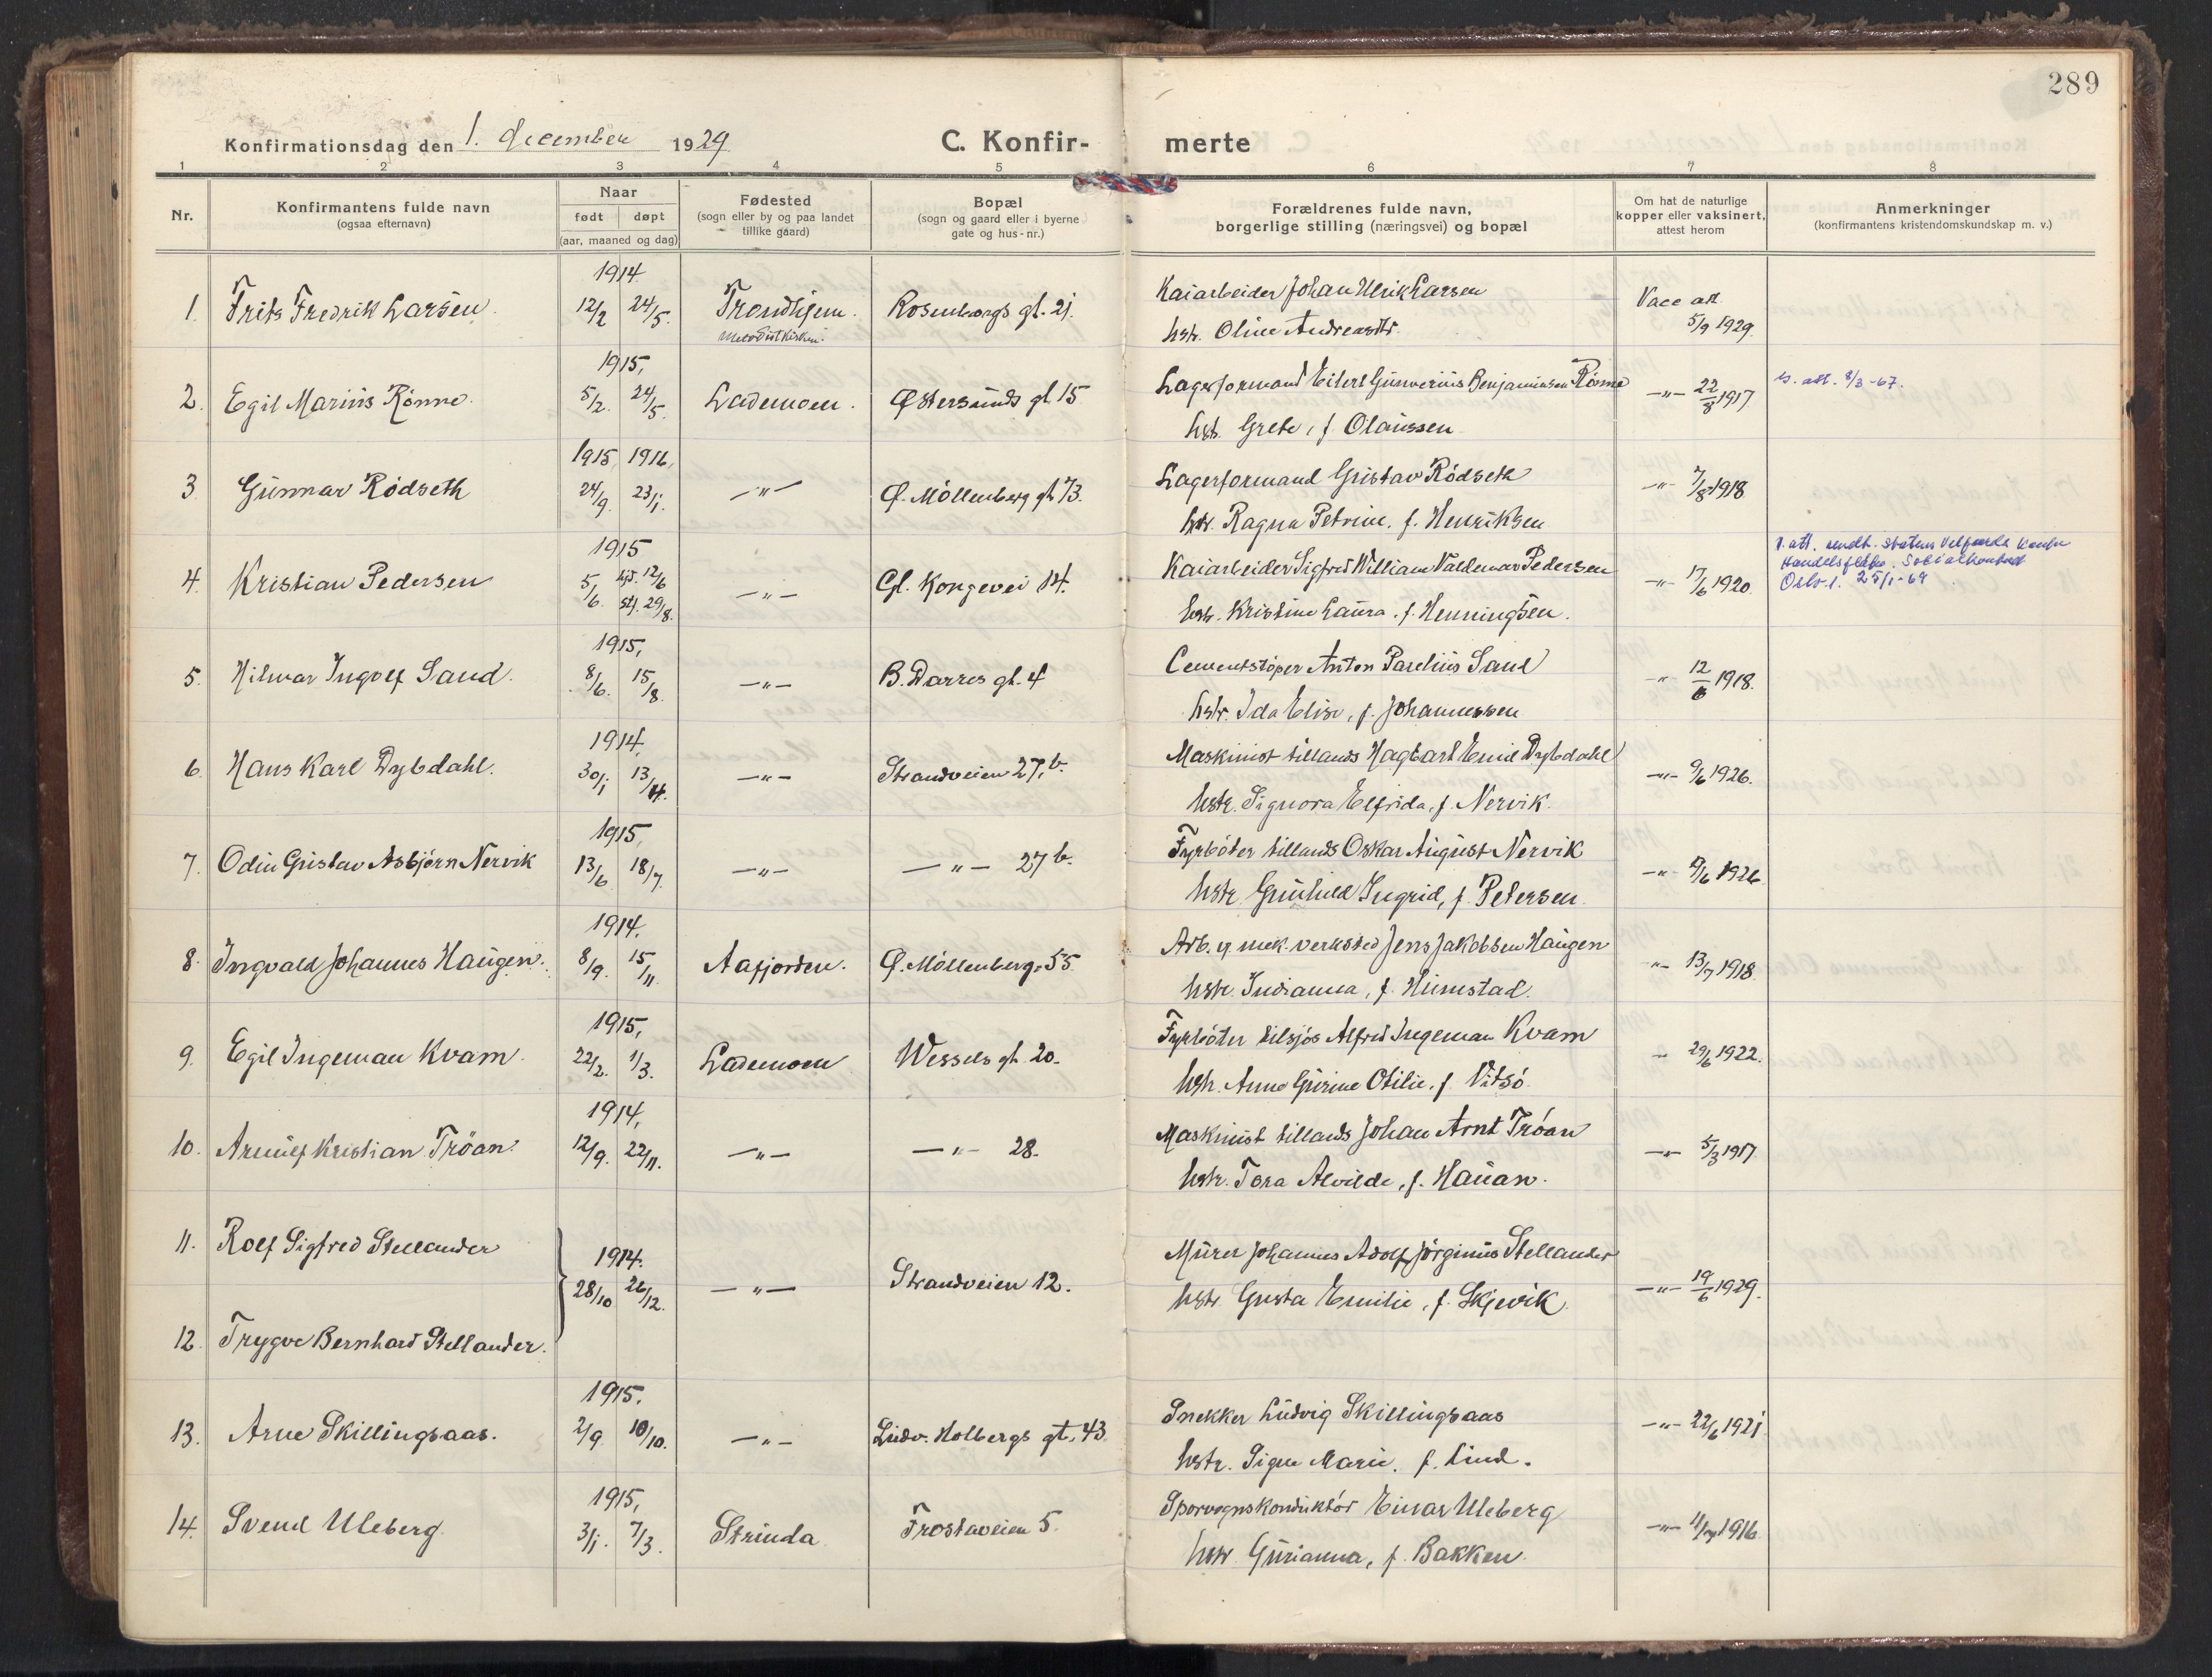 289
Konfirmationsdag den 1. december 1929
C. Konfirmerte
1 2 3 4 5 6 7 8
Nr.
Konfirmantens fulde navn
(ogsaa efternavn)
Naar
født døpt
(aar, maaned og dag)
Fødested
(sogn eller by og paa landet
tillike gaard)
Bopæl
(sogn og gaard eller i byerne
gate og hus-nr.)
Forældrenes fulde navn,
borgerlige stilling (næringsvei) og bopæl
Om hat de naturlige
kopper eller vaksinert,
attest herom
Anmerkninger
(konfirmantens kristendomskundskap m. v.)
1914
1. Frits Fredrik Larsen. 12/2 24/5. Trondhjem. Rosenborgs gt. 21. Kaiarbeider Johan Ulrik Larsen Vacc att
Metodistkirken. hstr. Oline Andreasdtr. 5/9 1929
1915,
2. Egil Marius Rönne. 5/2. 24/5. Lademoen. Østersunds gt 15 Lagerformand Eilert Gunverius Benjaminsen Rönne —"— 22/8 1917 att. 8/3-67.
hstr. Grete, f. Olaussen
1915, 1916,
3. Gunnar Rödseth 24/9. 23/1. —"— Ø. Möllenberg gt 73. Lagerformand Gustav Rödseth —"— 7/8 1918
hstr. Ragna Petrine. f. Henriksen
1915
4. Kristian Pedersen 5/6. hjd. 12/6 —"— Gl. Kongevei 14. Kaiarbeider Sigfred William Valdemar Pedersen —"— 17/6 1920.
stf. 29/8. hstr. Kristine Laura. f. Henningsen.
att. sendt. Statens Velferds kontor
Handelsflåten. Socialkontoret
Oslo-1. 25/1-69
1915,
5. Hilmar Ingolf Sand. 8/6. 15/8. —"— B. Darres gt. 4 Cementstöper Anton Parelius Sand —"— 12/6 1918.
hstr. Ida Elise, f. Johannessen
1914,
6. Hans Karl Dybdahl. 30/1 13/4. —"— Strandveien 27, b. Maskinist tillands Hagbart Emil Dybdahl —"— 9/6 1926.
hstr. Signora Elfrida, f. Nervik.
1915,
7. Odin Gustav Asbjörn Nervik 13/6 18/7. —"— —"— 27 b. Fyrböter tillands Oskar August Nervik —"— 9/6 1926
hstr. Gunhild Ingrid, f. Petersen.
1914.
8. Ingvald Johannes Haugen. 8/9. 15/11. Aafjorden. Ø. Möllenberg. 55 Arb. v mek. verksted Jens Jakobsen Haugen —"— 13/7 1918.
hstr. Indianna, f. Humstad.
1915,
9. Egil Ingeman Kvam. 22/2. 1/3. Lademoen Wessels gt. 20. Fyrböter tilsjös Alfred Ingeman Kvam —"— 29/6 1922.
hstr. Anna Gurine Otilie, f. Vitsö.
1914,
10. Arnulf Kristian Tröan. 12/9. 22/11. —"— —"— 28. Maskinist tillands Johan Arnt Tröan —"— 5/3 1917.
hstr. Tora Alvilde, f. Hauan.
11. Rolf Sigfred Stellander
1914. Murer Johannes Adolf Jörginius Stellander
28/10 26/12. —"— Strandveien 12. hstr. Gusta Emilie, f. Skjevik. —"— 19/6 1929.
12. Trygve Bernhard Stellander.
1915.
13. Arne Skillingsaas. 2/9. 10/10. —"— Ludv. Holbergs gt. 43. Snekker Ludvig Skillingsaas —"— 22/6 1921
hstr. Signe Marie. f. Lind.
1915,
14. Svend Uleberg. 3/1. 7/3. Strinda Frostaveien 5. Sporvognskonduktör Einar Uleberg —"— 1916.
hstr Gurianna, f. Bakken.